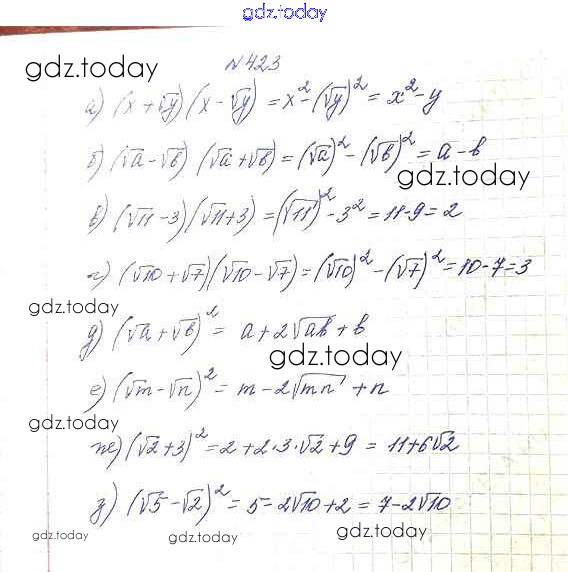 gdz.today
№423
gdz.today
а) (x + √y)(x - √y) = x² - (√y)² = x² - y
б) (√a - √b)(√a + √b) = (√a)² - (√b)² = a - b
gdz.today
в) (√11 - 3)(√11 + 3) = (√11)² - 3² = 11 - 9 = 2
г) (√10 + √7)(√10 - √7) = (√10)² - (√7)² = 10 - 7 = 3
gdz.today
д) (√a + √b)² = a + 2√ab + b
gdz.today
е) (√m - √n)² = m - 2√mn + n
gdz.today
ж) (√2 + 3)² = 2 + 2·3·√2 + 9 = 11 + 6√2
з) (√5 - √2)² = 5 - 2√10 + 2 = 7 - 2√10
gdz.today gdz.today gdz.today